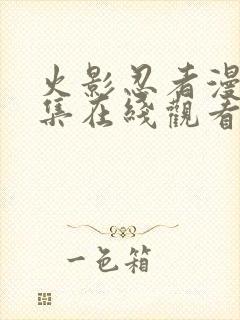 火影忍者漫
集在綫觀看
一色箱